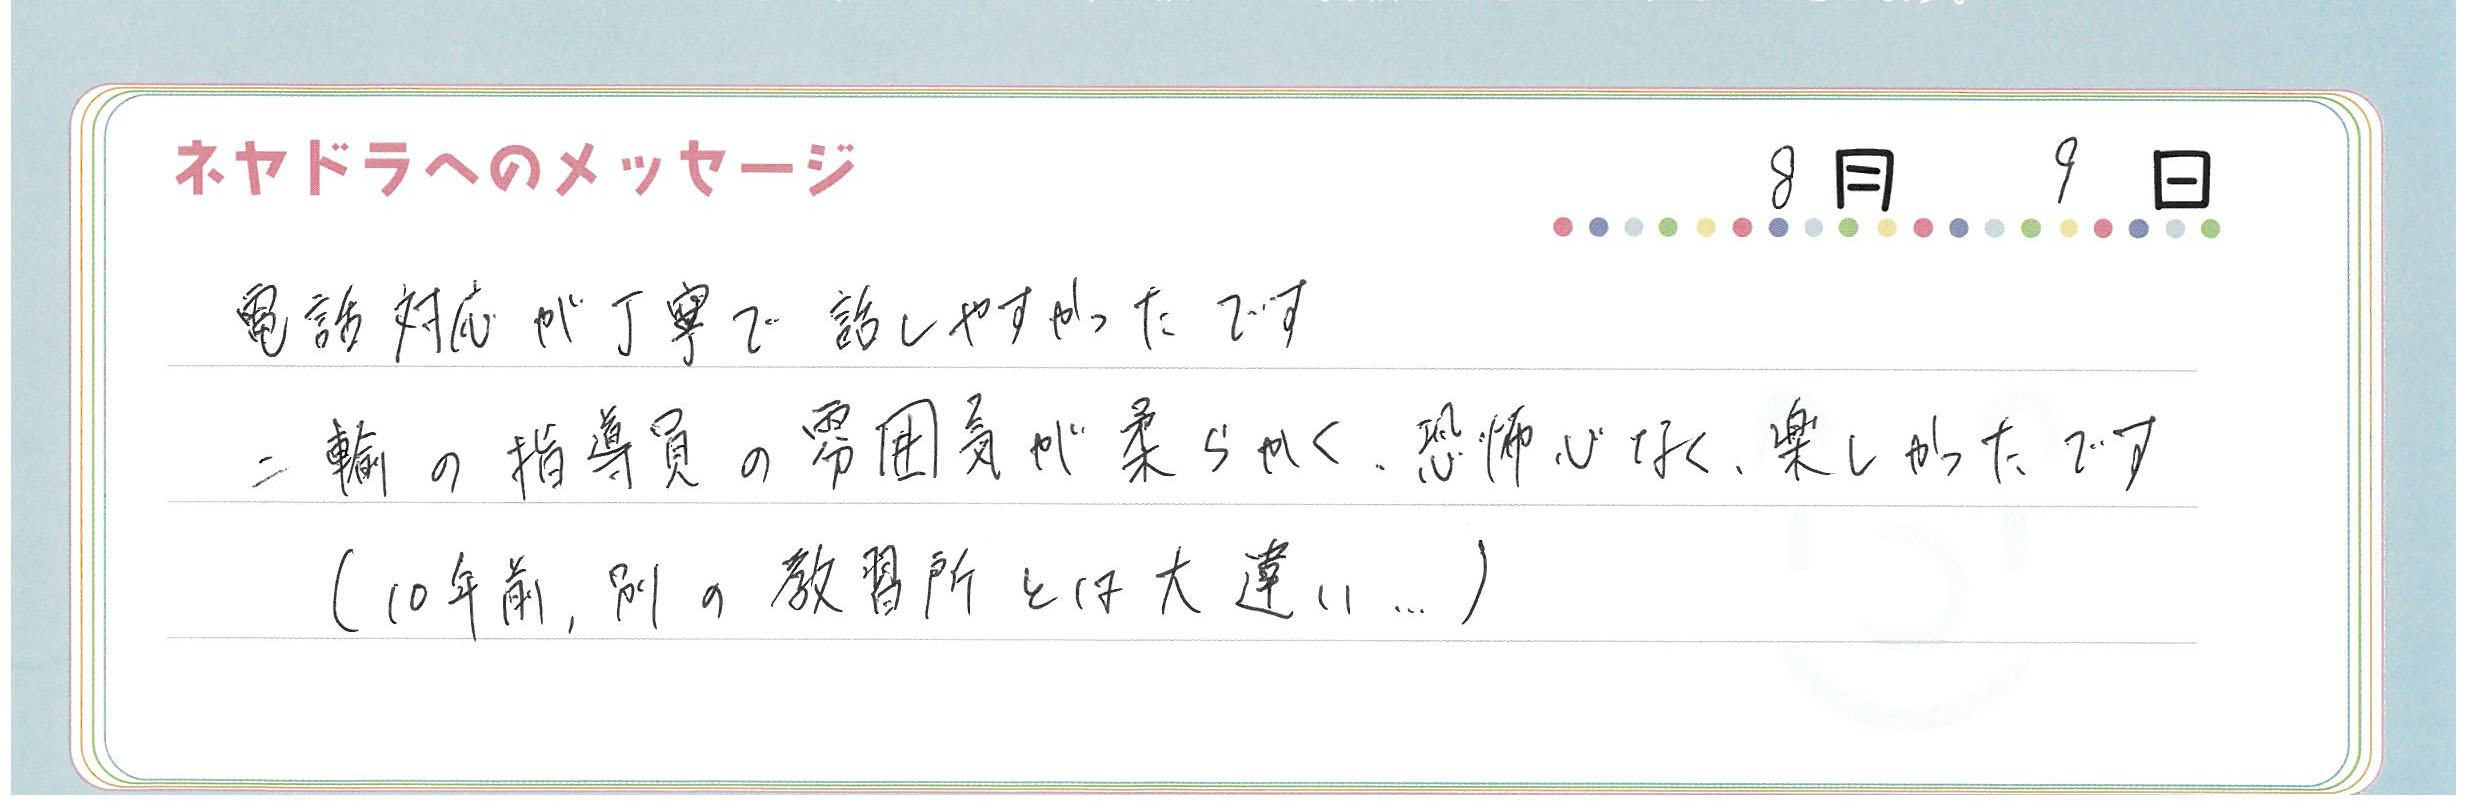 ネヤドラへのメッセージ
8月 9日
電話対応が丁寧で話しやすかったです
二輪の指導員の雰囲気が柔らかく、恐怖心なく、楽しかったです
(10年前,別の教習所とは大違い…)